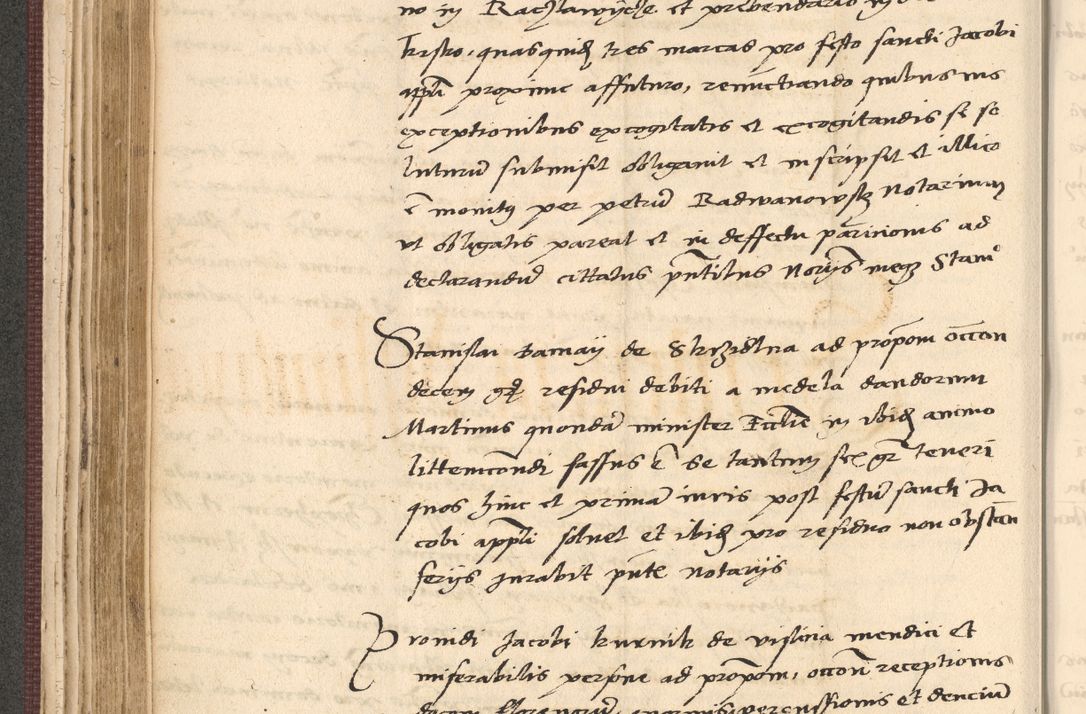 no in Raczlawycze et prebendario in
krsko, quasquid tres marcas pro festo sancti Jacobi
appli proxime affuturo, renunctiando quibusuis
exceptionibus excogitatis et excogitandis se so
luturum submisit obligauit et inscripsit et illico
e monitus per petrum Radwanowsky Notarium
ut obligatis pareat et in deffectu paricionis ad
declarandum cittatus pntibus Notarys meque Stanº
Stanislai Barnay de Skrzidlna ad propom occon
decem gr residui debiti a medela dandorum
Martinus quondam minister Ecclie in ibid animo
littemcondi fassus e se tantum sex gr teneri
quos hinc et primam iuris post festum sancti Ja
cobi appli soluet et ibid pro residuo non obstan
ferys jurabit pnte notarys
Prouidi Jacobi kurnik de vislicia mendici et
miserabilis persone ad propom, occon receptionis
decem florenorum, percussionis et dencium